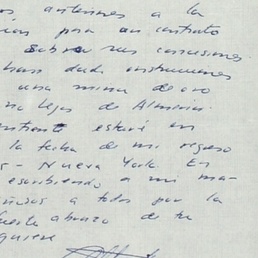 os anteriores a la
ias para un contrato
sobre sus concesiones.
han dado instrucciones
una mina de oro
no lejos de Almería.
entrante estaré en
la fecha de mi regreso
s - Nueva York. En
escribiendo a mi ma-
ñosos a todos por la
fuerte abrazo de tu
quiere